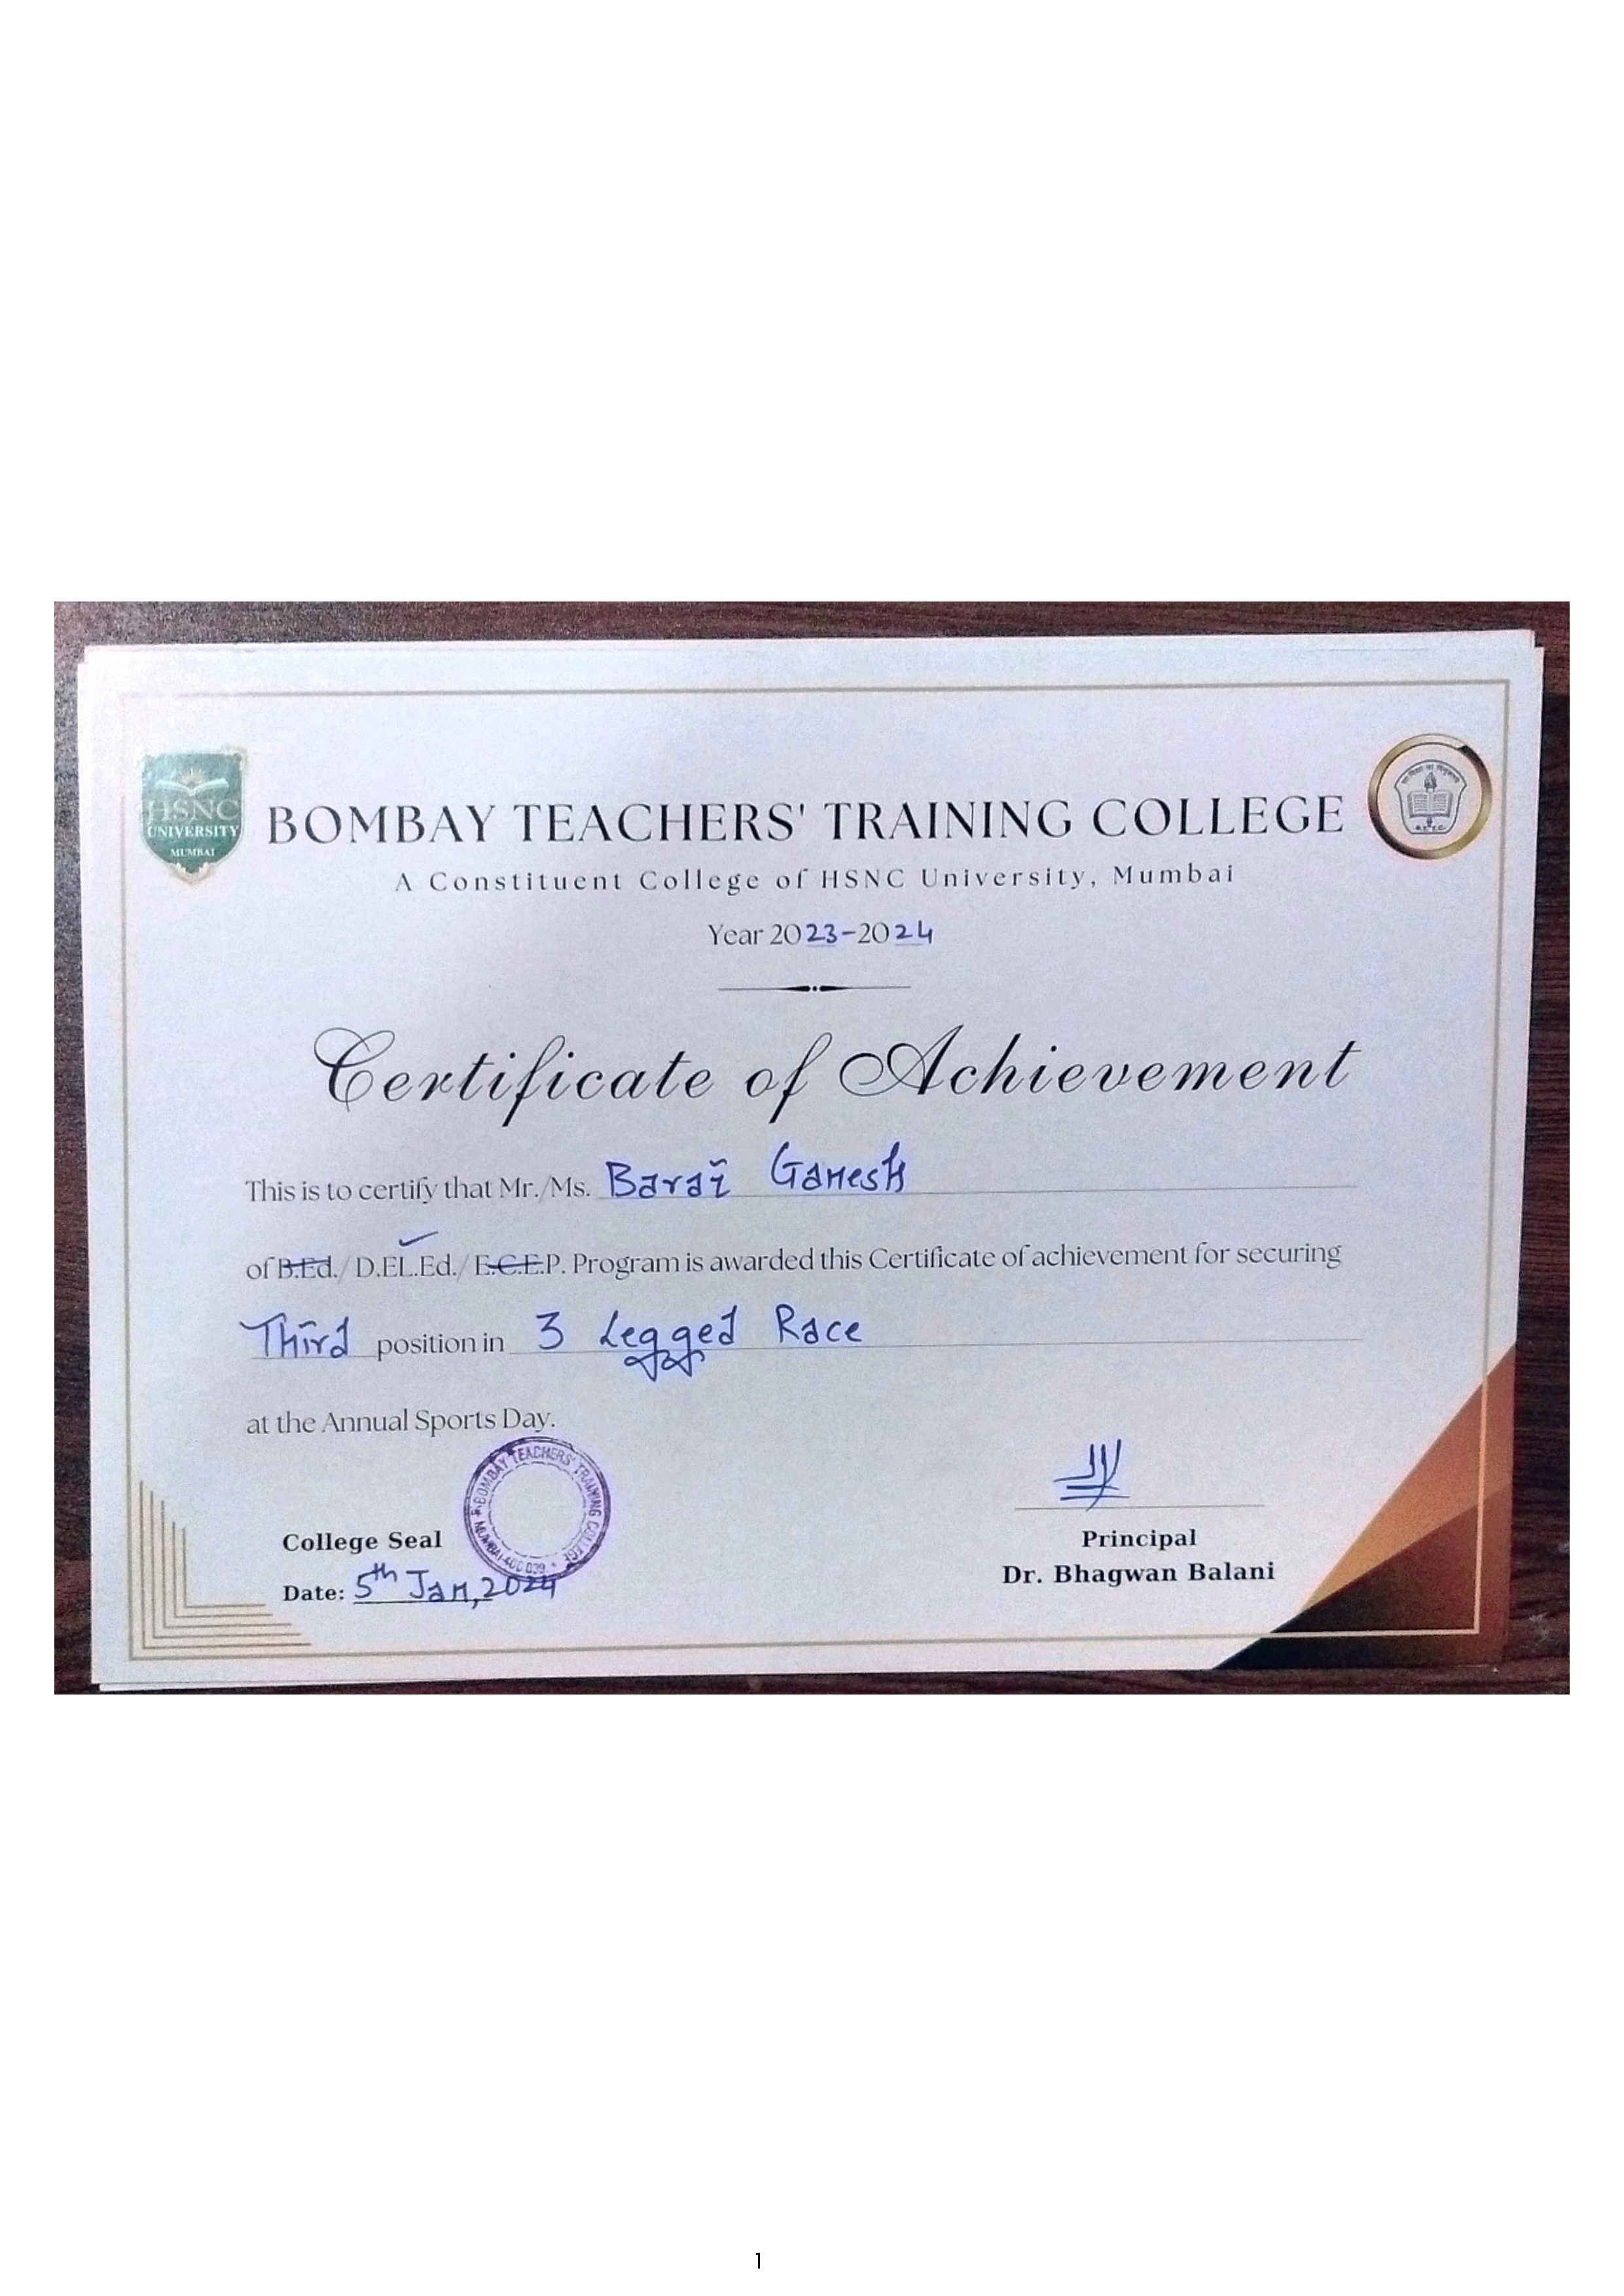 HSNC
UNIVERSITY
MUMBAI
BOMBAY TEACHERS' TRAINING COLLEGE
B.T.T.C.
A Constituent College of HSNC University, Mumbai
Year 2023-2024
Certificate of Achievement
This is to certify that Mr./Ms. Barai Ganesh
of B.Ed./ D.EL.Ed./ E.C.E.P. Program is awarded this Certificate of achievement for securing
Third position in 3 Legged Race
at the Annual Sports Day.
BOMBAY TEACHERS' TRAINING COLLEGE
MUMBAI-400 039
College Seal
Date: 5th Jan, 2024
Principal
Dr. Bhagwan Balani
1